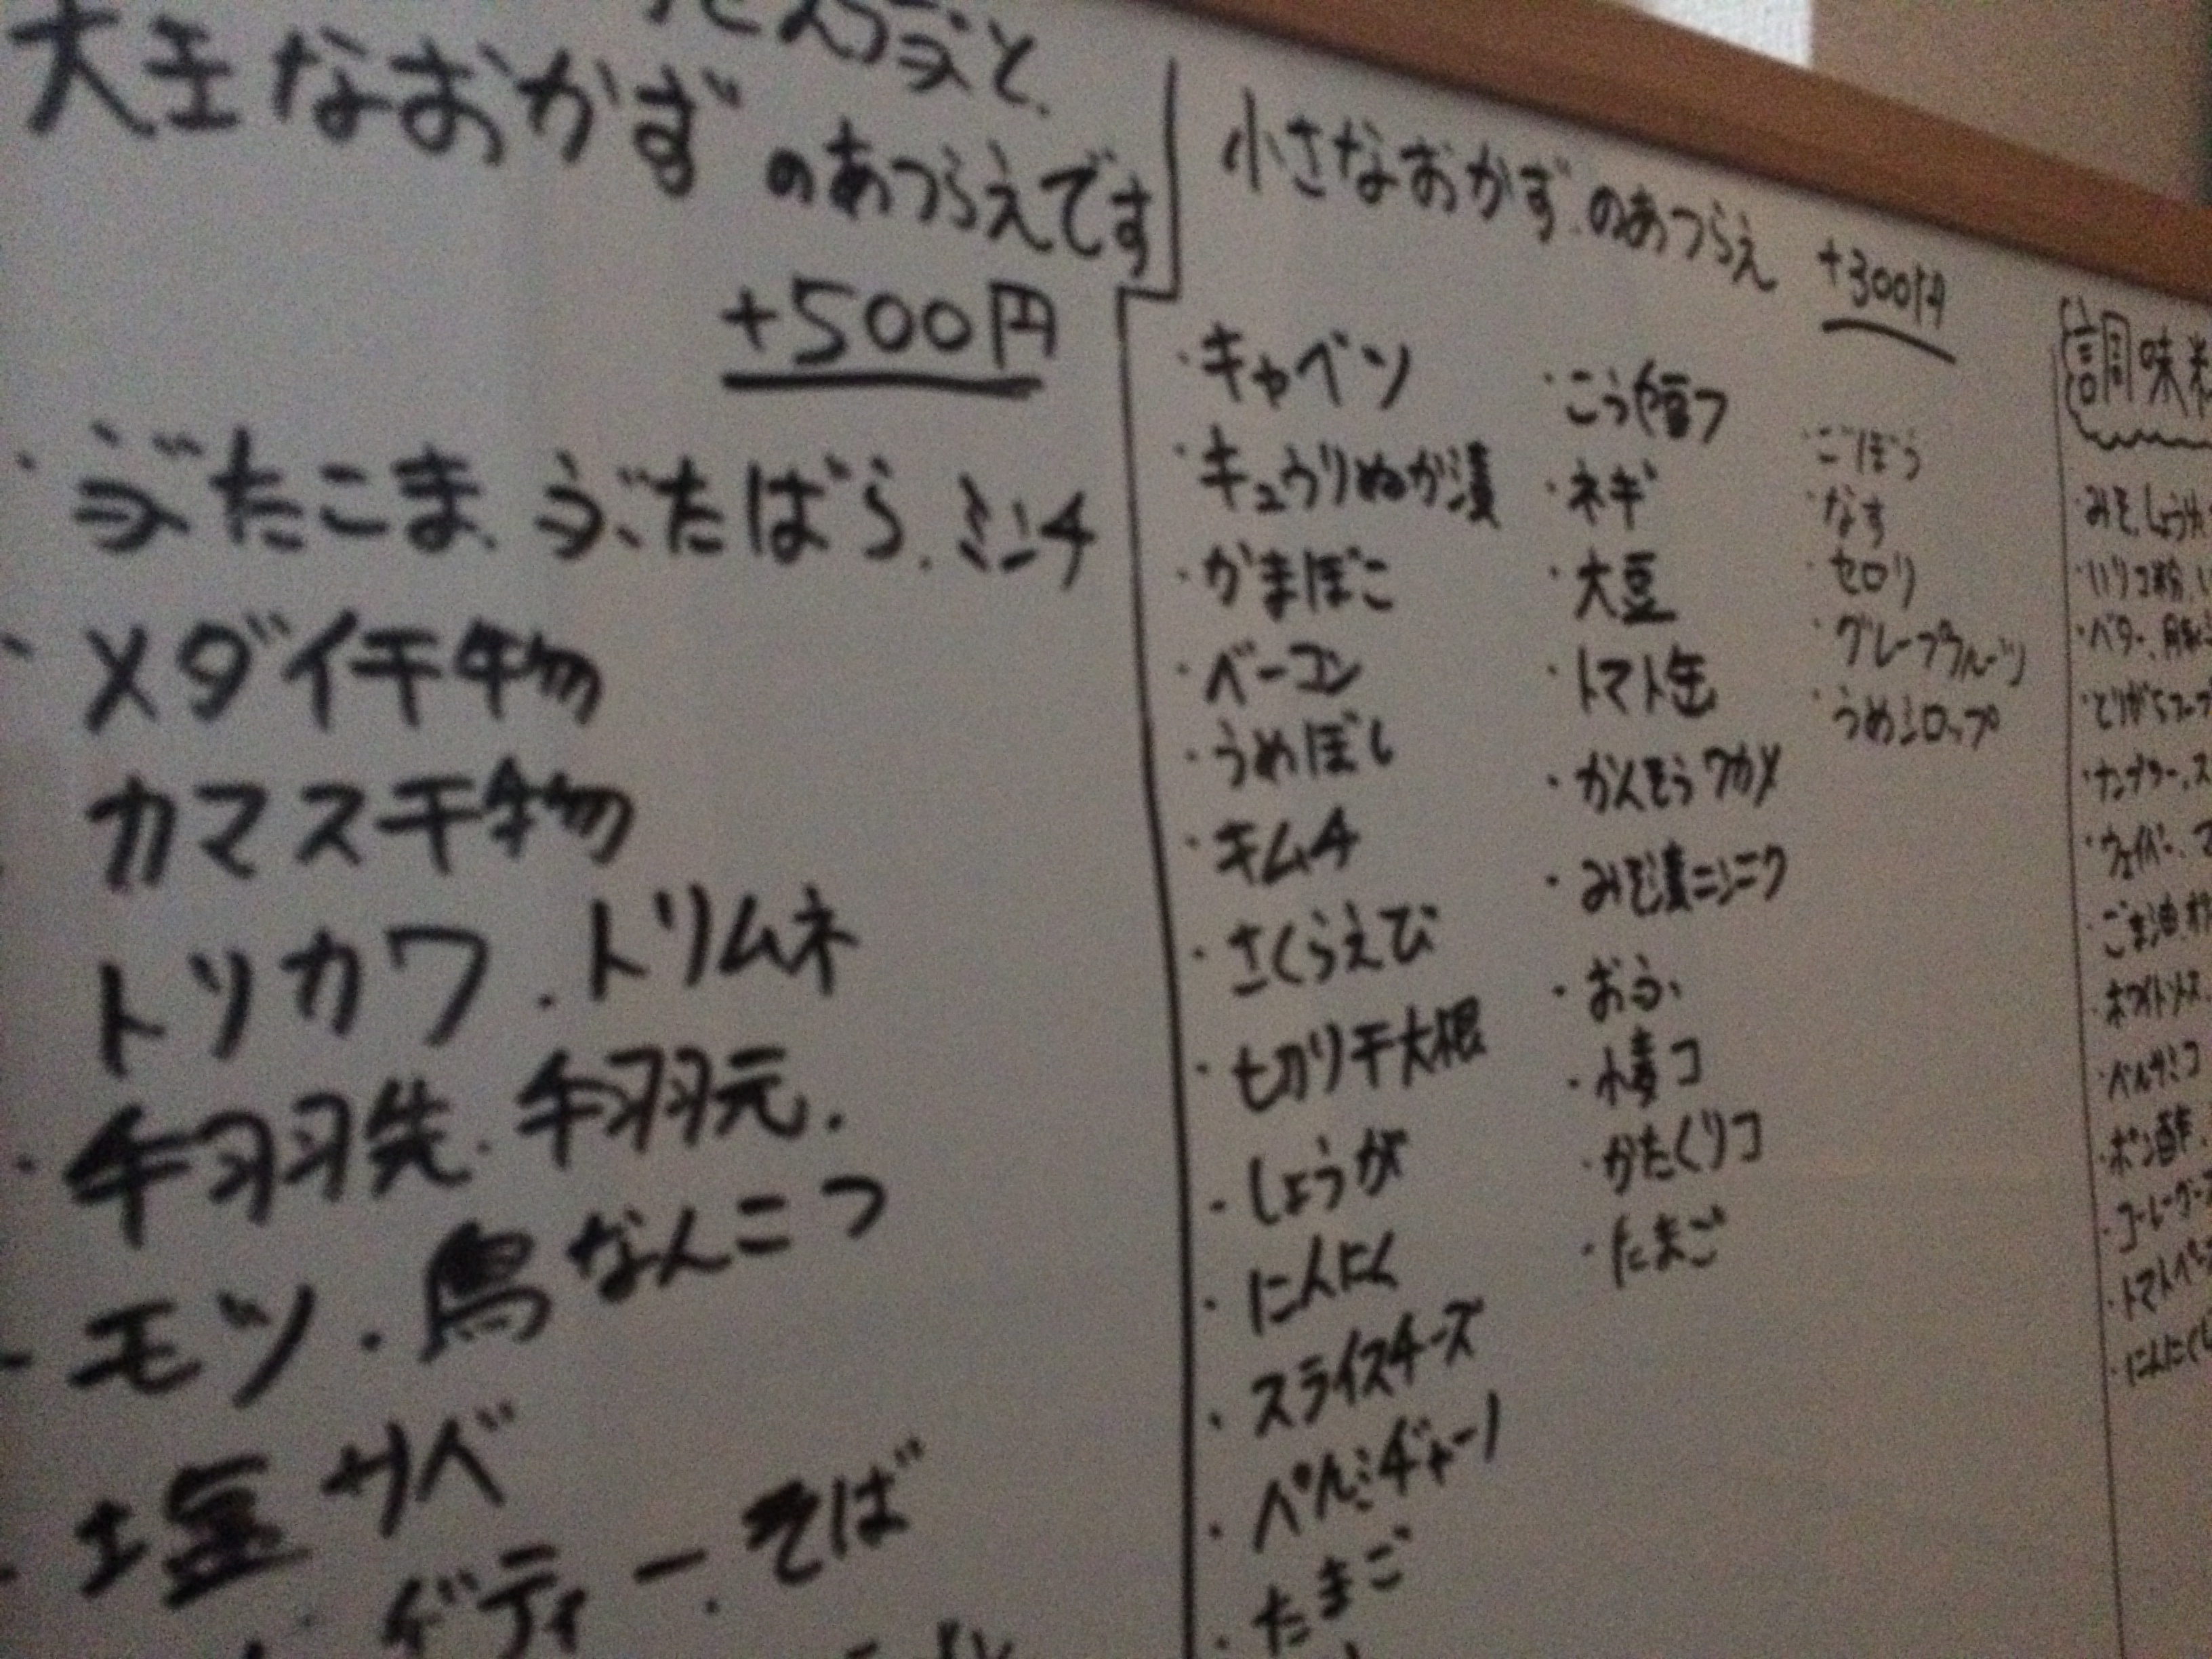 大王なおかず のあつらえです
+500円
・ぶたこま、ぶたばら、ミンチ
・メダイ干物
カマス干物
トリカワ・トリムネ
・手羽先・手羽元・
モツ・鳥なんこつ
・塩サバ
ゲティー・そば
小さなおかずのあつらえ +300円
・キャベツ
・キュウリぬか漬
・かまぼこ
・ベーコン
・うめぼし
・キムチ
・さくらえび
・切り干大根
・しょうが
・にんにく
・スライスチーズ
・ペルミヂャーノ
・たまご
・ネギ
・大豆
・トマト缶
・かんそうワカメ
・みそ漬ニンニク
・おふ
・小麦コ
・かたくりコ
・たまご
・ごぼう
・なす
・セロリ
・グレープフルーツ
・うめシロップ
調味料
・みそ、しょうゆ
・いりコ粉、
・バター、
・とりがらスープ
・ナンプラー、ス
・ウェイパー、
・ごま油、
・ホワイトソース
・バルサミコ
・ポン酢
・コーレーグー
・トマトペー
・にんにく